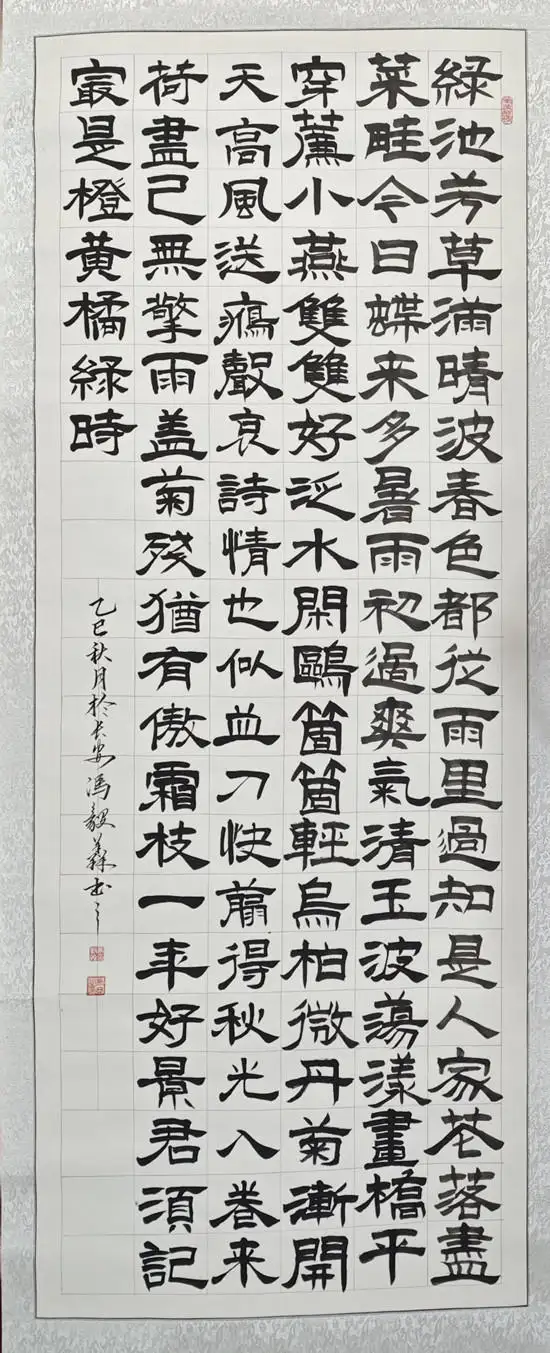 綠池芳草滿晴波春色都從雨里過知是人家花落盡
菜畦今日蝶来多暑雨初過爽氣清玉波蕩漾畫橋平
穿簾小燕雙雙好泛水閑鷗箇箇輕烏桕微丹菊漸開
天高風送鴈聲哀詩情也似並刀快翦得秋光入卷来
荷盡已無擎雨盖菊殘猶有傲霜枝一年好景君須記
最是橙黄橘綠時
乙巳秋月於长安冯毅森书之